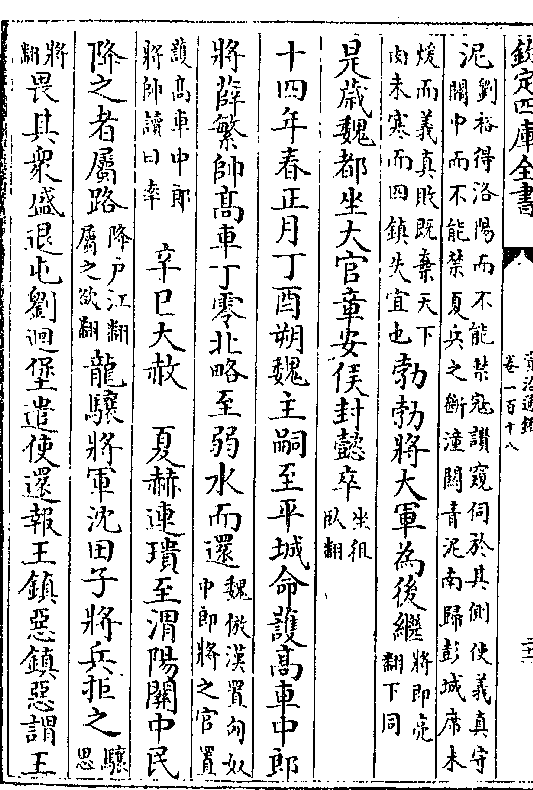 欽定四庫全書
資治通鑑
卷一百十八
泥劉裕得洛陽而不能禁寇讚窺伺於其側使義真守
關中而不能禁夏兵之斷潼關青泥南歸彭城席未
煖而義真敗既棄天下
肉未寒而四鎮失宜也
勃勃將大軍為後繼
將即亮
翻下同
是歲魏都坐大官章安侯封懿卒
坐徂
臥翻
十四年春正月丁酉朔魏主嗣至平城命護高車中郎
將薛繁帥高車丁零北略至弱水而還
魏倣漢置匈奴
中郎將之官置
護高車中郎
將帥讀曰率
辛巳大赦
夏赫連璝至渭陽關中民
降之者屬路
降戶江翻
屬之欲翻
龍驤將軍沈田子將兵拒之
驤思
將
翻
畏其衆盛退屯劉迴堡遣使還報王鎮惡鎮惡謂王